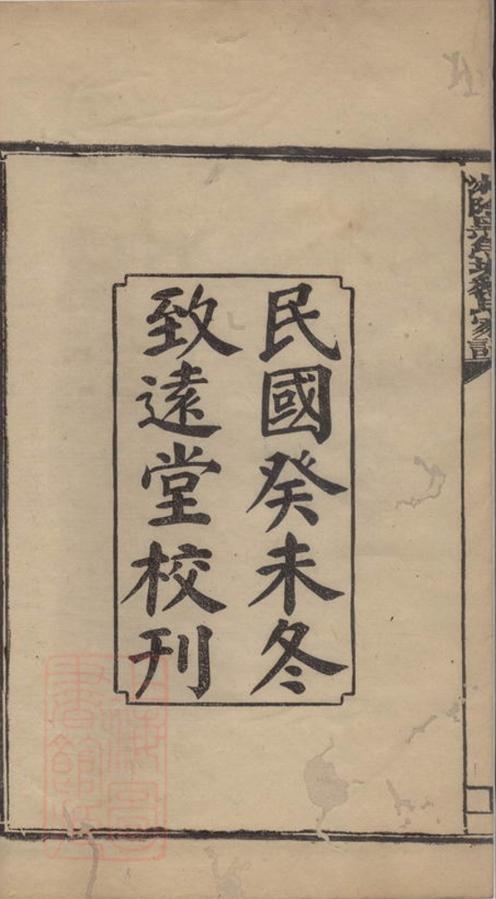 民國癸未冬
致遠堂校刊